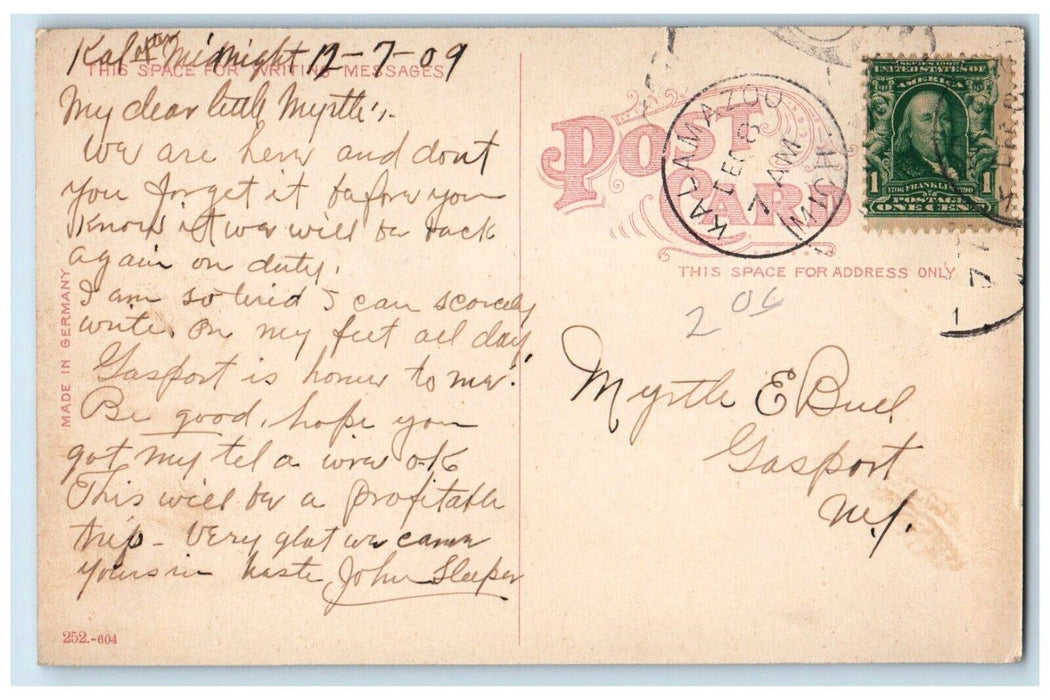 Kal after Midnight 12-7-09
THIS SPACE FOR WRITING MESSAGES
My dear little Myrtle:-
We are here and dont
you forget it before you
know it we will be back
again on duty.
I am so tired I can scarcely
write. On my feet all day,
Gasport is home to me!
Be good, hope you
got my tel a wire ok
This will be a profitable
trip - Very glat we came
yours in haste John Sleeper
MADE IN GERMANY
252.-604
POST CARD
THIS SPACE FOR ADDRESS ONLY
KALAMAZOO
DEC 8
7 AM
MICH.
SERIES 1902
UNITED STATES OF
AMERICA
1706 FRANKLIN 1790
1 POSTAGE 1
ONE CENT
206
Myrtle E Buel
Gasport
N.Y.